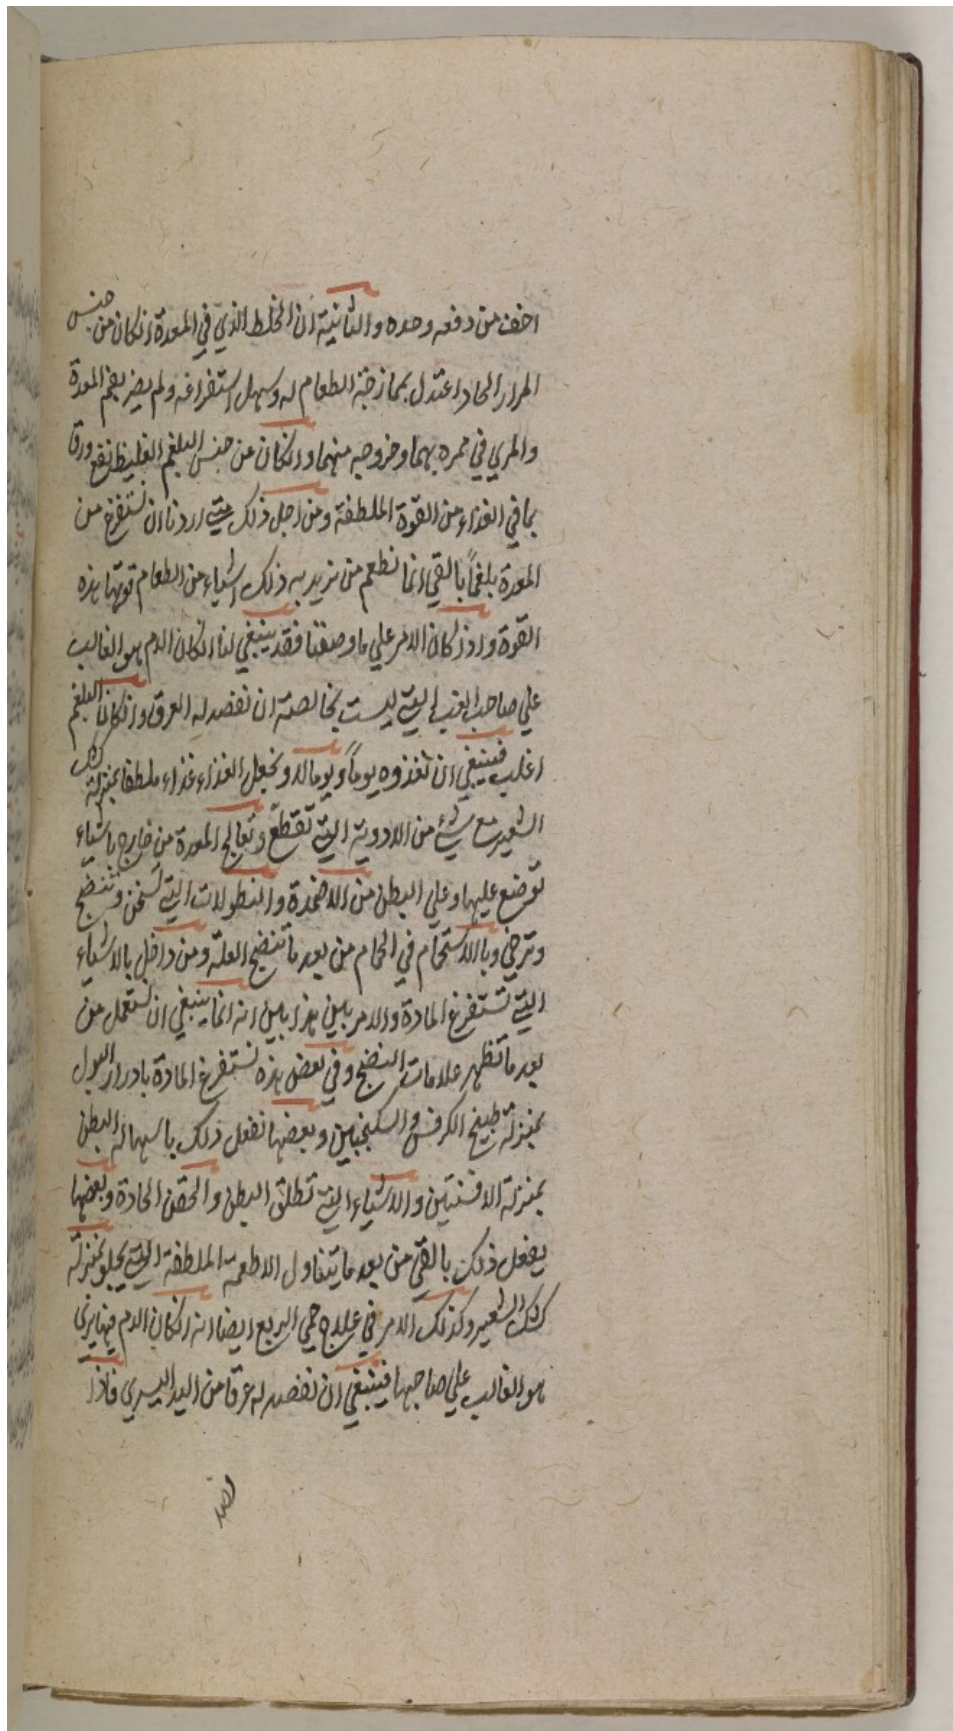 اخف من دفعه وحده والثانية ان الخلط الذي في المعدة انكان من جنس
المرار الحاد اعتدل بممازجة الطعام له وسهل استفراغه ولم يضر بفم المعدة
والمري في ممره بهما وخروجه منهما وانكان من جنس البلغم الغليظ نفع ورق
بما في الغذاء من القوة الملطفة ومن اجل ذلك متي اردنا ان نستفرغ من
المعدة بلغماً بالقي انما نطعم من نريد به ذلك اشياء من الطعام قوتها هذه
القوة واذ كان الامر علي ما وصفنا فقد ينبغي لنا انكان الدم هو الغالب
علي صاحب الغب التي ليست بخالصة ان نفصد له العرق وانكان البلغم
اغلب فينبغي ان تغذوه يوماً ويوما لا ونجعل الغذاء غذاء ملطفا بمنزلة كشك
الشعير مع شيء من الادوية التي تقطع وتعالج المعدة من خارج باشياء
توضع عليها وعلي البطن من الاضمدة والنطولات التي تسخن وتنضج
وترخي وبالاستحمام في الحمام من بعد ما تنضج العلة ومن داخل بالاشياء
التي تستفرغ المادة والامر بين هذا بين انه انما ينبغي ان تستعمل من
بعد ما تظهر علامات النضج وفي بعض هذه تستفرغ المادة بادرار البول
بمنزلة طبيخ الكرفس والسكنجبين وبعضها تفعل ذلك باسهاله البطن
بمنزلة الافسنتين والاشياء التي تطلق البطن والحقن الحادة وبعضها
يفعل ذلك بالقي من بعد ما يتناول الاطعمة الملطفة التي يجلو بمنزلة
كشك الشعير وكذلك الامر في علاج حمي الربع ايضا انه انكان الدم فيما يري
هو الغالب علي صاحبها فينبغي ان نفصد له عرقا من اليد اليسري فاذا